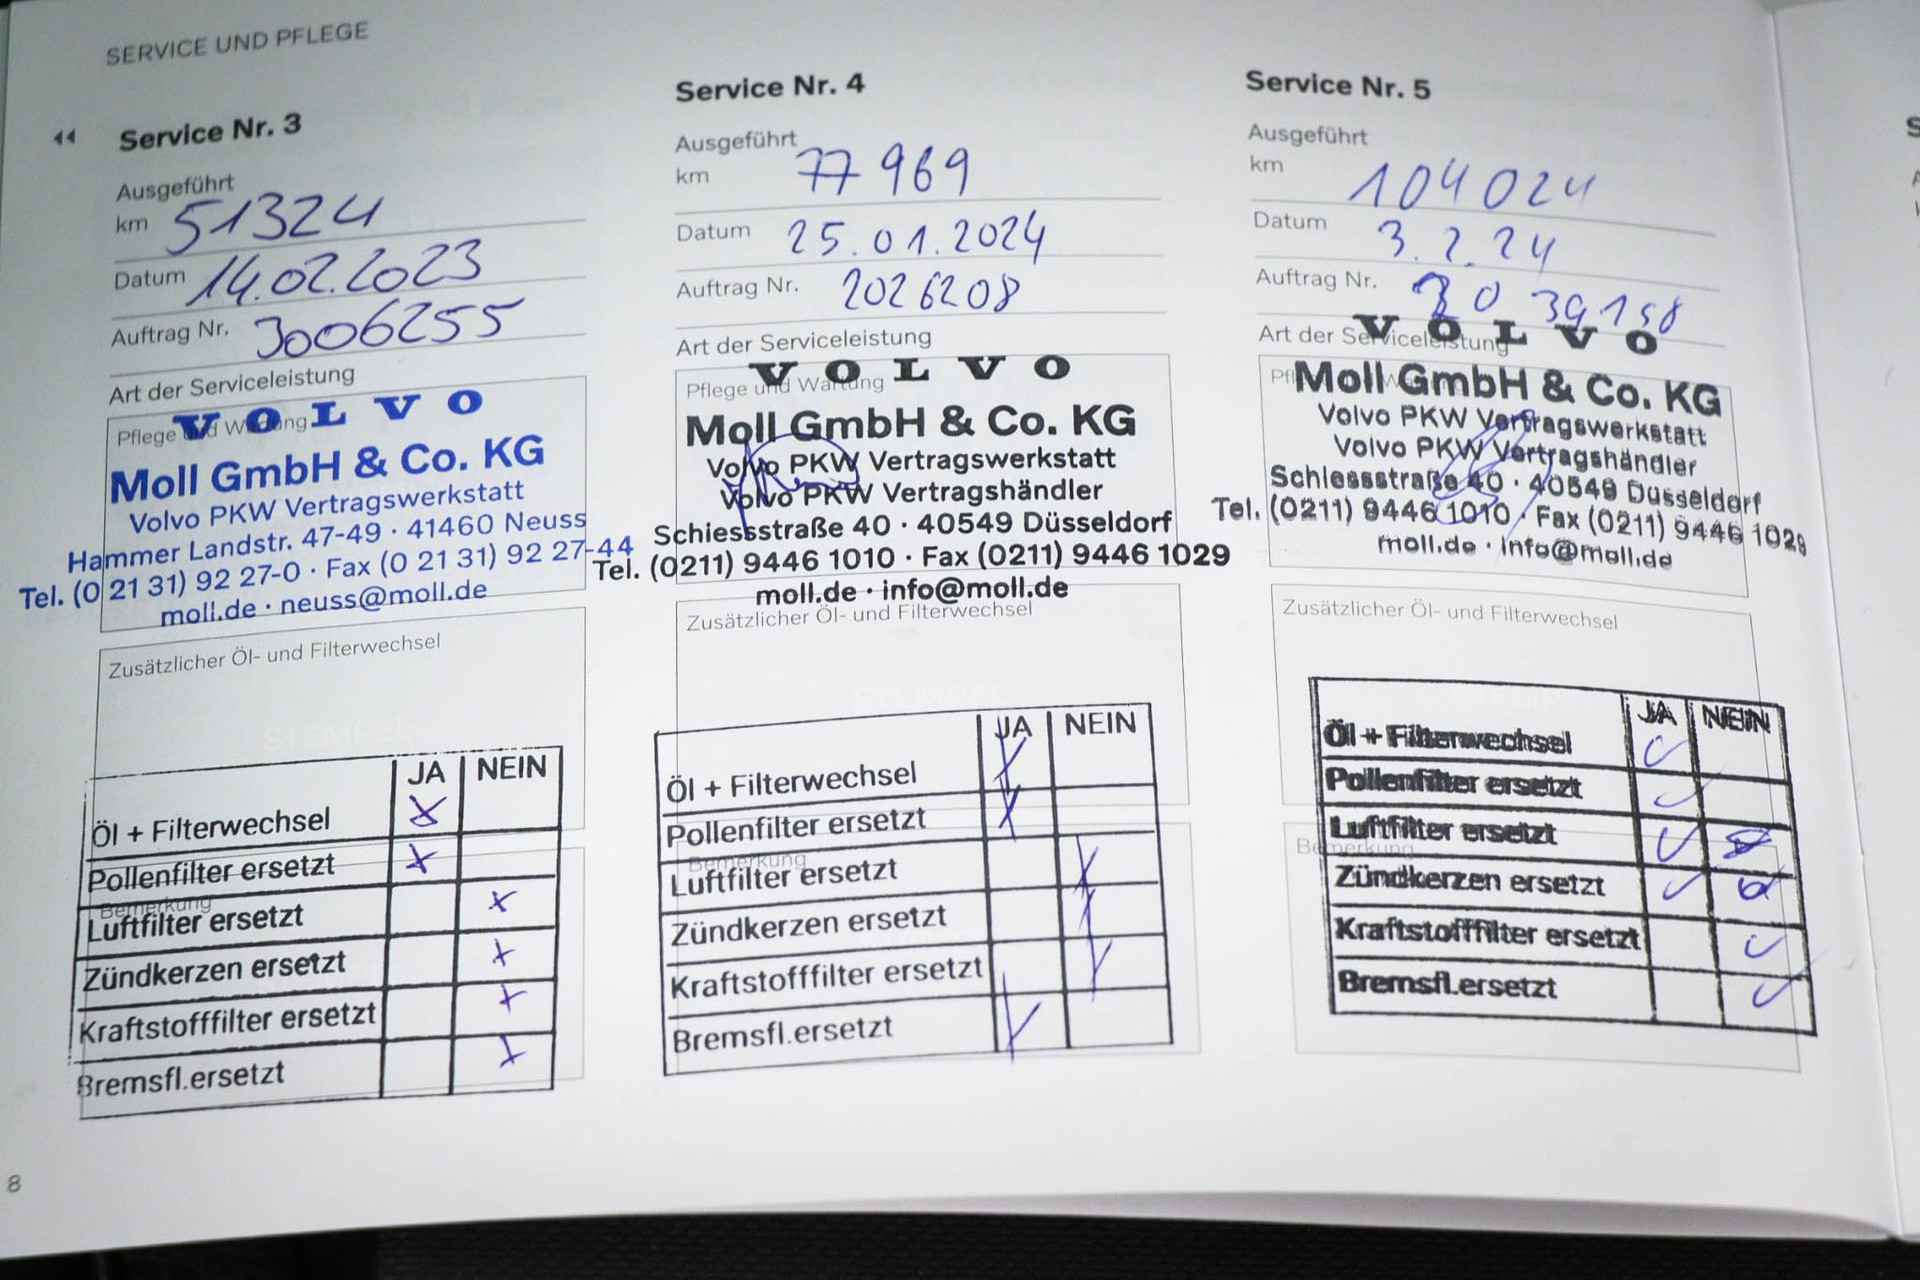 SERVICE UND PFLEGE
Service Nr. 3
Ausgeführt
km 51324
Datum 14.02.2023
Auftrag Nr. 3006255
Art der Serviceleistung
Pflege und Wartung
VOLVO
Moll GmbH & Co. KG
Volvo PKW Vertragswerkstatt
Hammer Landstr. 47-49 · 41460 Neuss
Tel. (0 21 31) 92 27-0 · Fax (0 21 31) 92 27-44
moll.de · neuss@moll.de
Zusätzlicher Öl- und Filterwechsel
JA NEIN
Öl + Filterwechsel x
Pollenfilter ersetzt x
Bemerkung
Luftfilter ersetzt x
Zündkerzen ersetzt x
Kraftstofffilter ersetzt x
Bremsfl.ersetzt x
8
Service Nr. 4
Ausgeführt
km 77969
Datum 25.01.2024
Auftrag Nr. 2026208
Art der Serviceleistung
Pflege und Wartung
VOLVO
Moll GmbH & Co. KG
Volvo PKW Vertragswerkstatt
Volvo PKW Vertragshändler
Schiessstraße 40 · 40549 Düsseldorf
Tel. (0211) 9446 1010 · Fax (0211) 9446 1029
moll.de · info@moll.de
Zusätzlicher Öl- und Filterwechsel
JA NEIN
Öl + Filterwechsel
Pollenfilter ersetzt
Bemerkung
Luftfilter ersetzt
Zündkerzen ersetzt
Kraftstofffilter ersetzt
Bremsfl.ersetzt
Service Nr. 5
Ausgeführt
km 104024
Datum 3.2.24
Auftrag Nr.
Art der Serviceleistung
VOLVO
Moll GmbH & Co. KG
Volvo PKW Vertragswerkstatt
Volvo PKW Vertragshändler
Schiessstraße 40 · 40549 Düsseldorf
Tel. (0211) 9446 1010 · Fax (0211) 9446 1029
moll.de · info@moll.de
Zusätzlicher Öl- und Filterwechsel
JA NEIN
Öl + Filterwechsel
Pollenfilter ersetzt
Luftfilter ersetzt
Bemerkung
Zündkerzen ersetzt
Kraftstofffilter ersetzt
Bremsfl.ersetzt